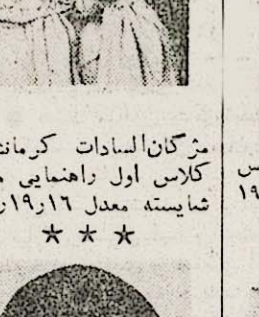 مژگان‌السادات کرمانش
کلاس اول راهنمایی م
شایسته معدل ۱۹٫۱۶ر
★ ★ ★
س
۱۹